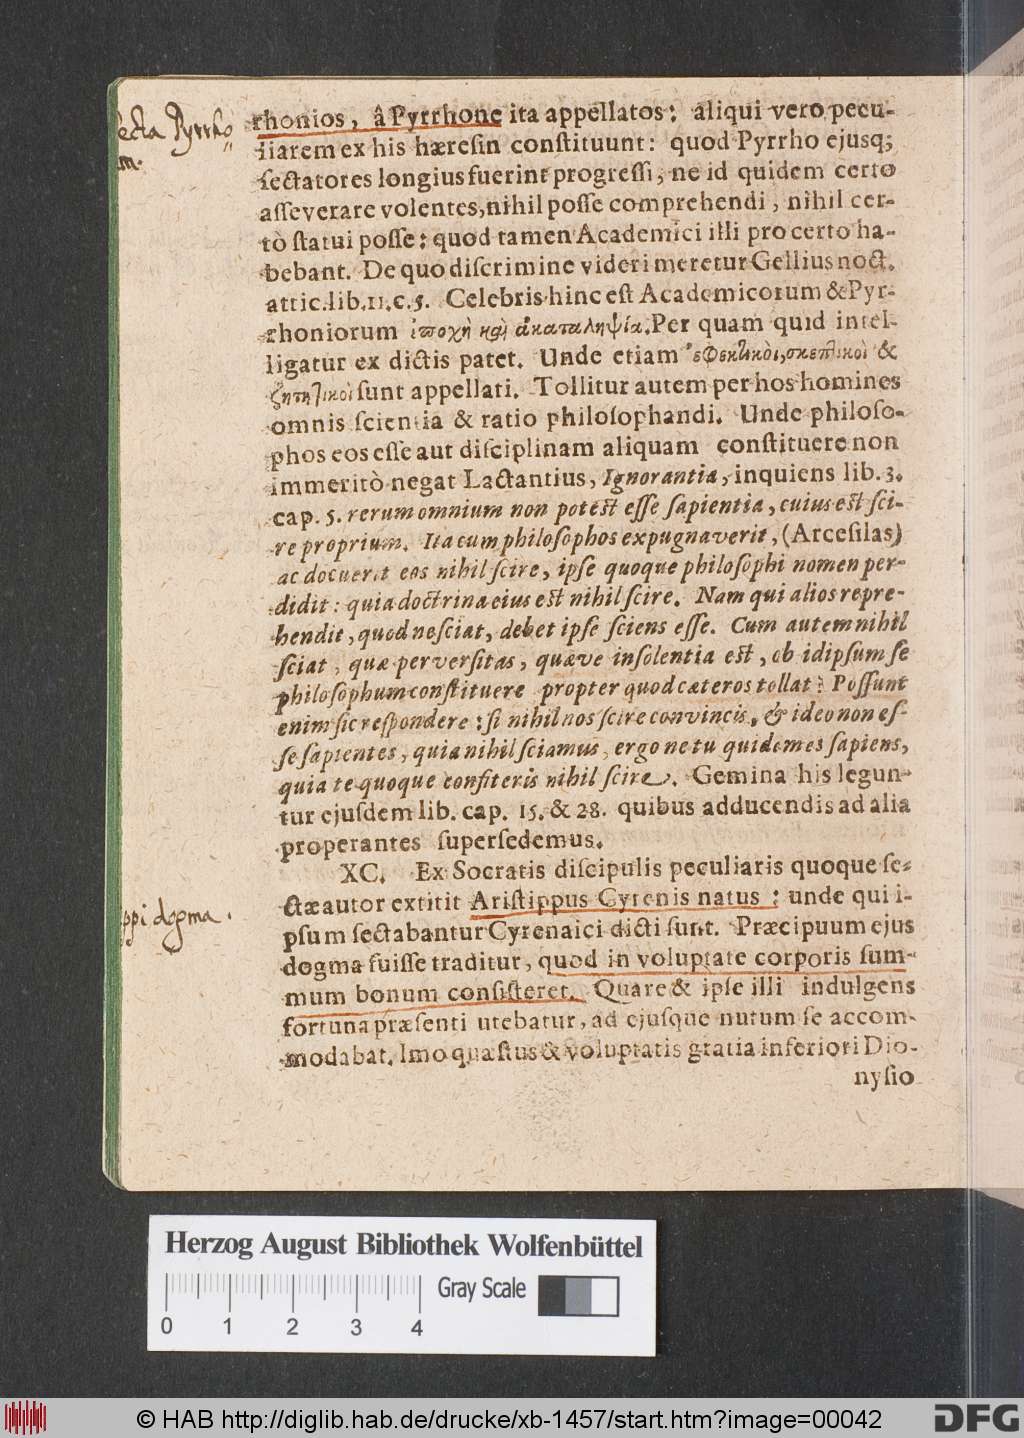 secta Pyrrho=
rhonios, â Pyrrhone ita appellatos: aliqui vero pecu-
liarem ex his hæresin constituunt: quod Pyrrho ejusq;
sectatores longius fuerint progressi, ne id quidem certo
asseverare volentes, nihil posse comprehendi, nihil cer-
tò statui posse: quod tamen Academici illi pro certo ha-
bebant. De quo discrimine videri meretur Gellius noct.
attic. lib. 11. c. 5. Celebris hinc est Academicorum & Pyr-
rhoniorum ἐποχὴ καὶ ἀκαταληψία. Per quam quid intel-
ligatur ex dictis patet. Unde etiam ἐφεκτικοὶ, σκεπτικοὶ &
ζητητικοὶ sunt appellati. Tollitur autem per hos homines
omnis scientia & ratio philosophandi. Unde philoso-
phos eos esse aut disciplinam aliquam constituere non
immeritò negat Lactantius, Ignorantia, inquiens lib. 3.
cap. 5. rerum omnium non potest esse sapientia, cuius est sci-
re proprium. Ita cum philosophos expugnaverit, (Arcesilas)
ac docuerit eos nihil scire, ipse quoque philosophi nomen per-
didit: quia doctrina eius est nihil scire. Nam qui alios repre-
hendit, quod nesciat, debet ipse sciens esse. Cum autem nihil
sciat, quæ perversitas, quæve insolentia est, ob id ipsum se
philosophum constituere propter quod cæteros tollat? Possunt
enim sic respondere: si nihil nos scire convincis, & ideo non es-
se sapientes, quia nihil sciamus, ergo ne tu quidem es sapiens,
quia te quoque confiteris nihil scire. Gemina his legun-
tur ejusdem lib. cap. 15. & 28. quibus adducendis ad alia
properantes supersedemus.
XC. Ex Socratis discipulis peculiaris quoque se-
ctæ autor extitit Aristippus Cyrenis natus: unde qui i-
ppi dogma.
psum sectabantur Cyrenaici dicti sunt. Præcipuum ejus
dogma fuisse traditur, quod in voluptate corporis sum-
mum bonum consisteret. Quare & ipse illi indulgens
fortuna præsenti utebatur, ad ejusque nutum se accom-
modabat. Imo quæstus & voluptatis gratia inferiori Dio-
nysio
Herzog August Bibliothek Wolfenbüttel
Gray Scale
0 1 2 3 4
© HAB http://diglib.hab.de/drucke/xb-1457/start.htm?image=00042
DFG